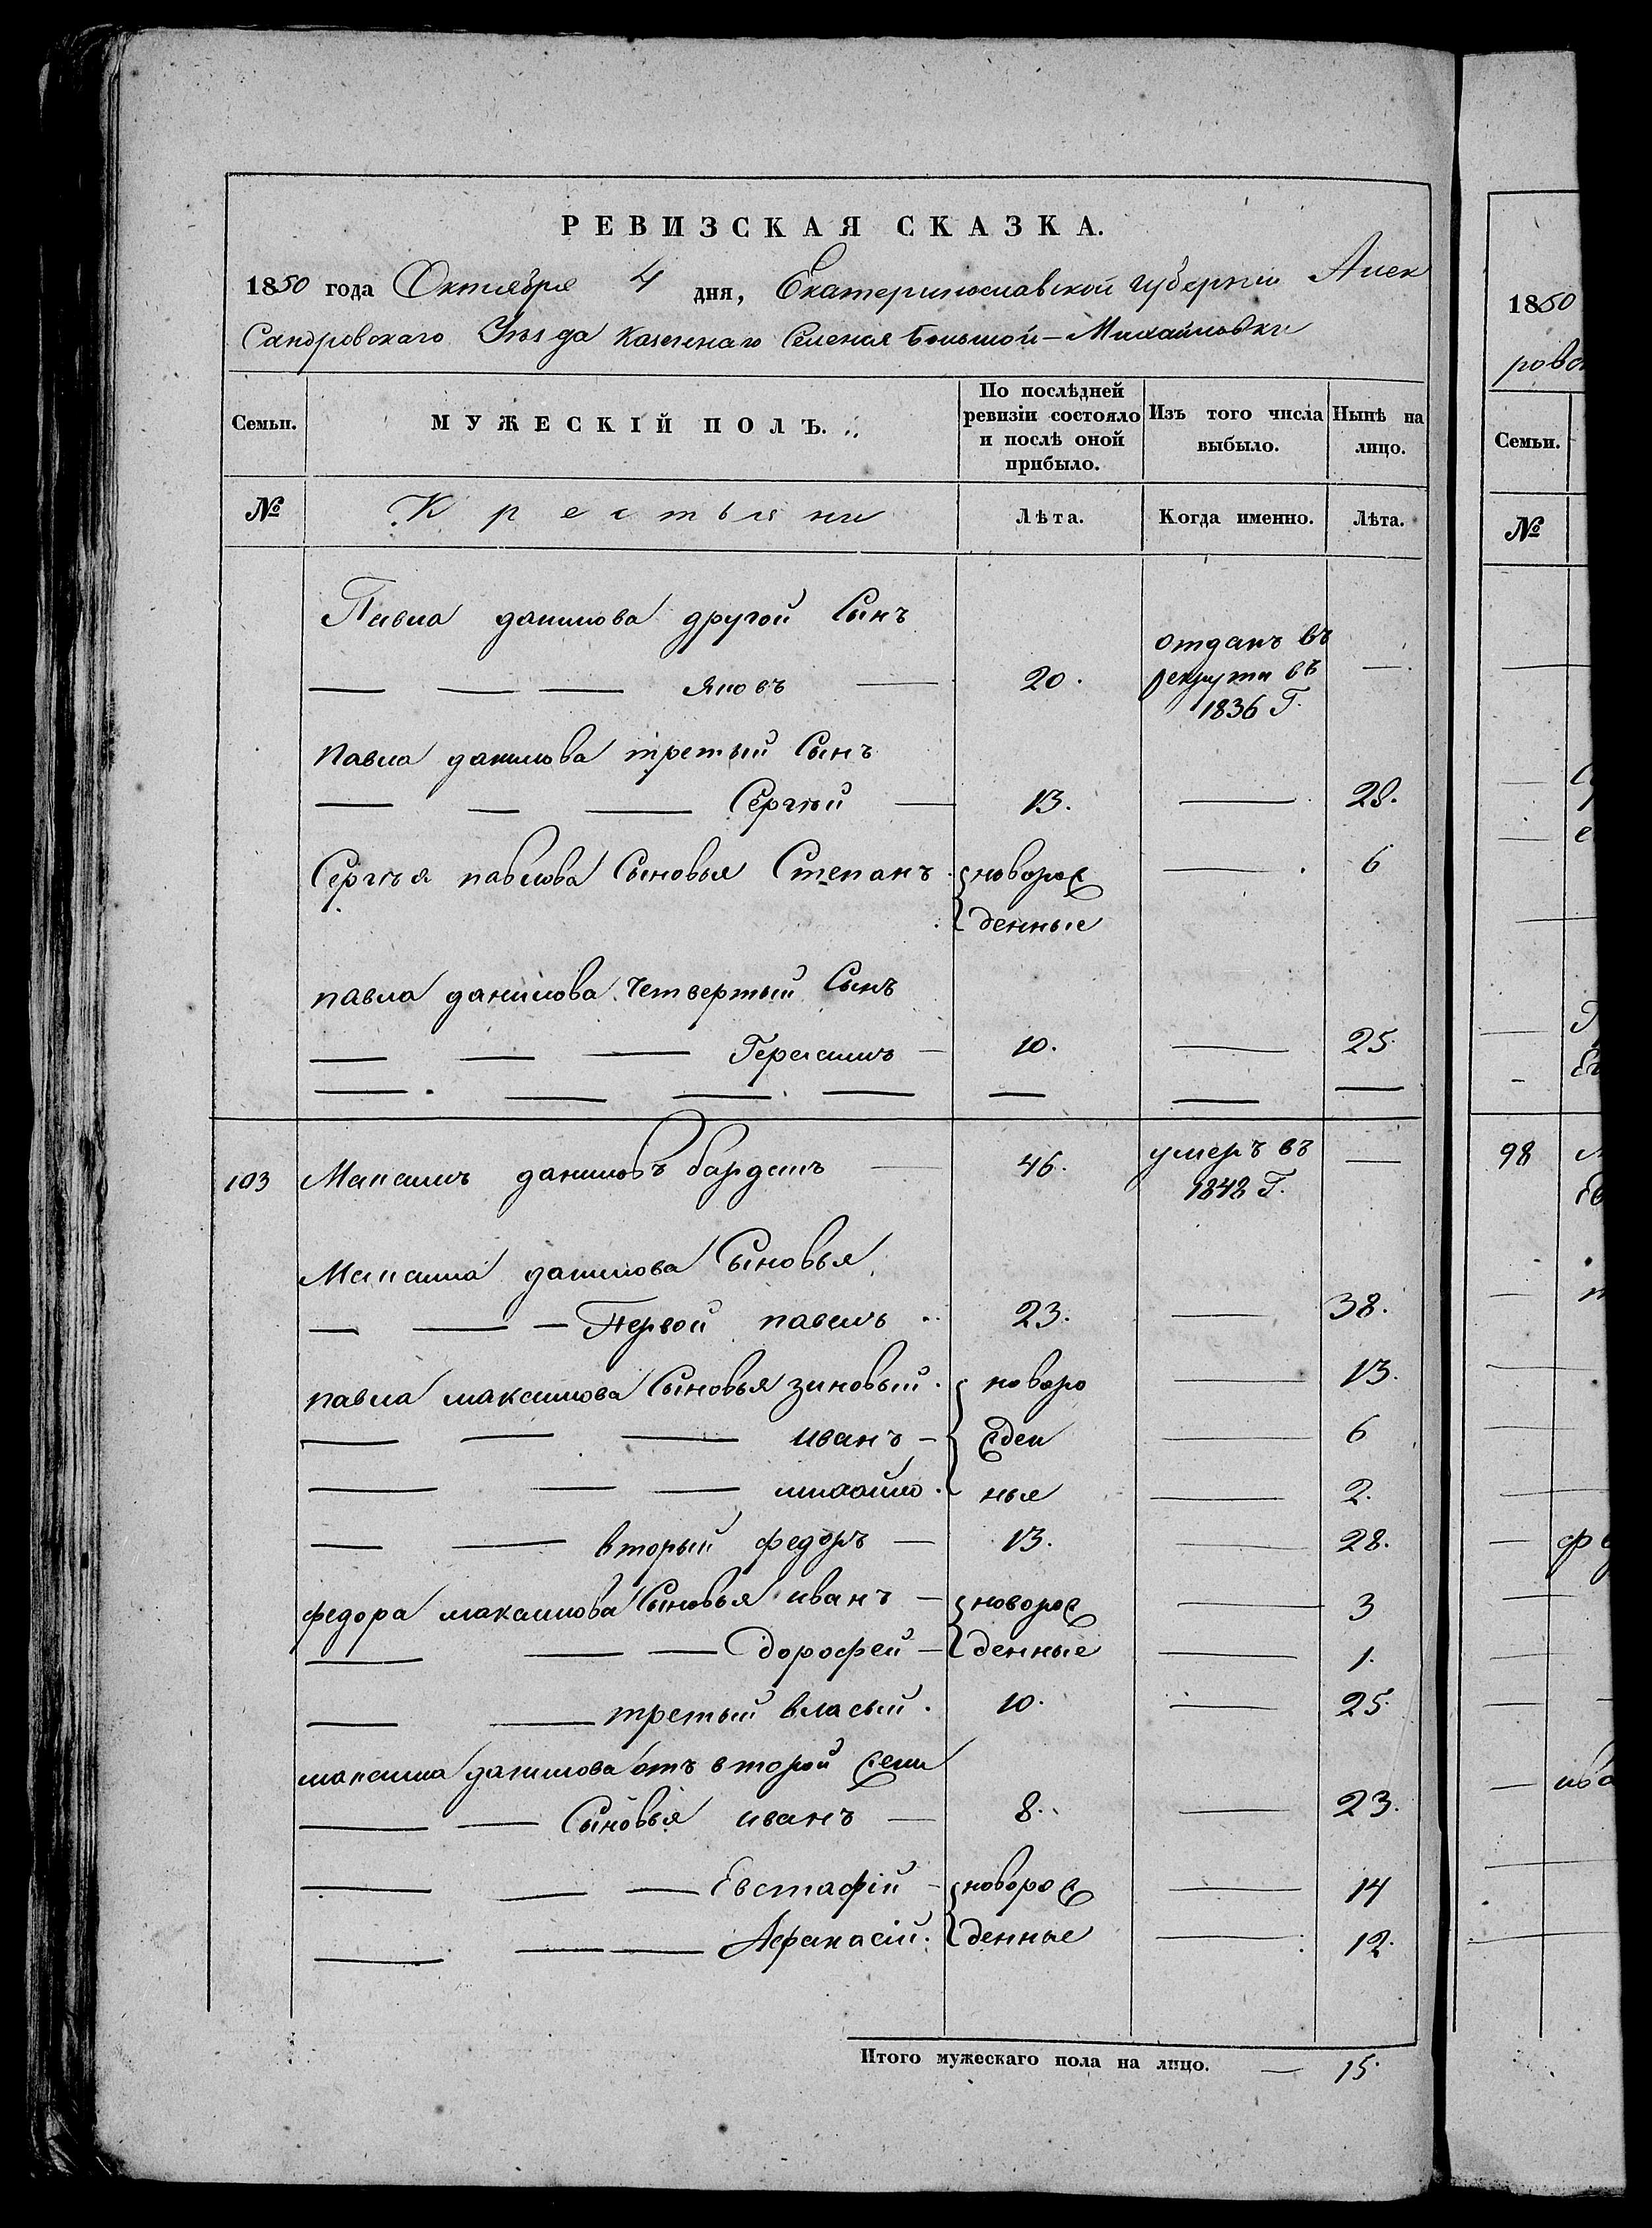 РЕВИЗСКАЯ СКАЗКА.
1850 года Октября 4 дня, Екатеринославской губернии Алек
Сандровскаго Уѣзда Казеннаго Селения Большой-Михайловки
Семьи. МУЖЕСКІЙ ПОЛЪ. По послѣдней ревизіи состояло и послѣ оной прибыло. Изъ того числа выбыло. Нынѣ на лицо.
№ Крестьяни Лѣта. Когда именно. Лѣта.
Павла данилова другой Сынъ
— — — Яковъ — 20. отданъ въ рекруты въ 1836 Г. —
павла данилова третьий Сынъ
— — — Сергѣй — 13. — 28.
Сергѣя павлова Сыновья Степанъ. новорож — 6
денные
павла данилова четвертый Сынъ
— — — Герасимъ — 10. — 25.
— — — — — — —
103 Максимъ даниловъ барданъ — 46. умеръ въ 1848 Г. —
Максима данилова Сыновья
— — — Первой павелъ 23. — 38.
павла максимова Сыновья зиновый. новоро — 13.
— — — иванъ — жден — 6
— — — михайло. ныя — 2.
— — вторый федоръ — 13. — 28.
федора максимова Сыновья иванъ — новорож — 3
— — — дорофей — денные — 1.
— — третый власый. 10. — 25
максима данилова отъ второй жены
— — Сыновья иванъ — 8. — 23.
— — — Евстафій — новорож — 14
— — — Афанасій. денные — 12.
Итого мужескаго пола на лицо. — 15.
1850
ровс
Семьи.
№
98